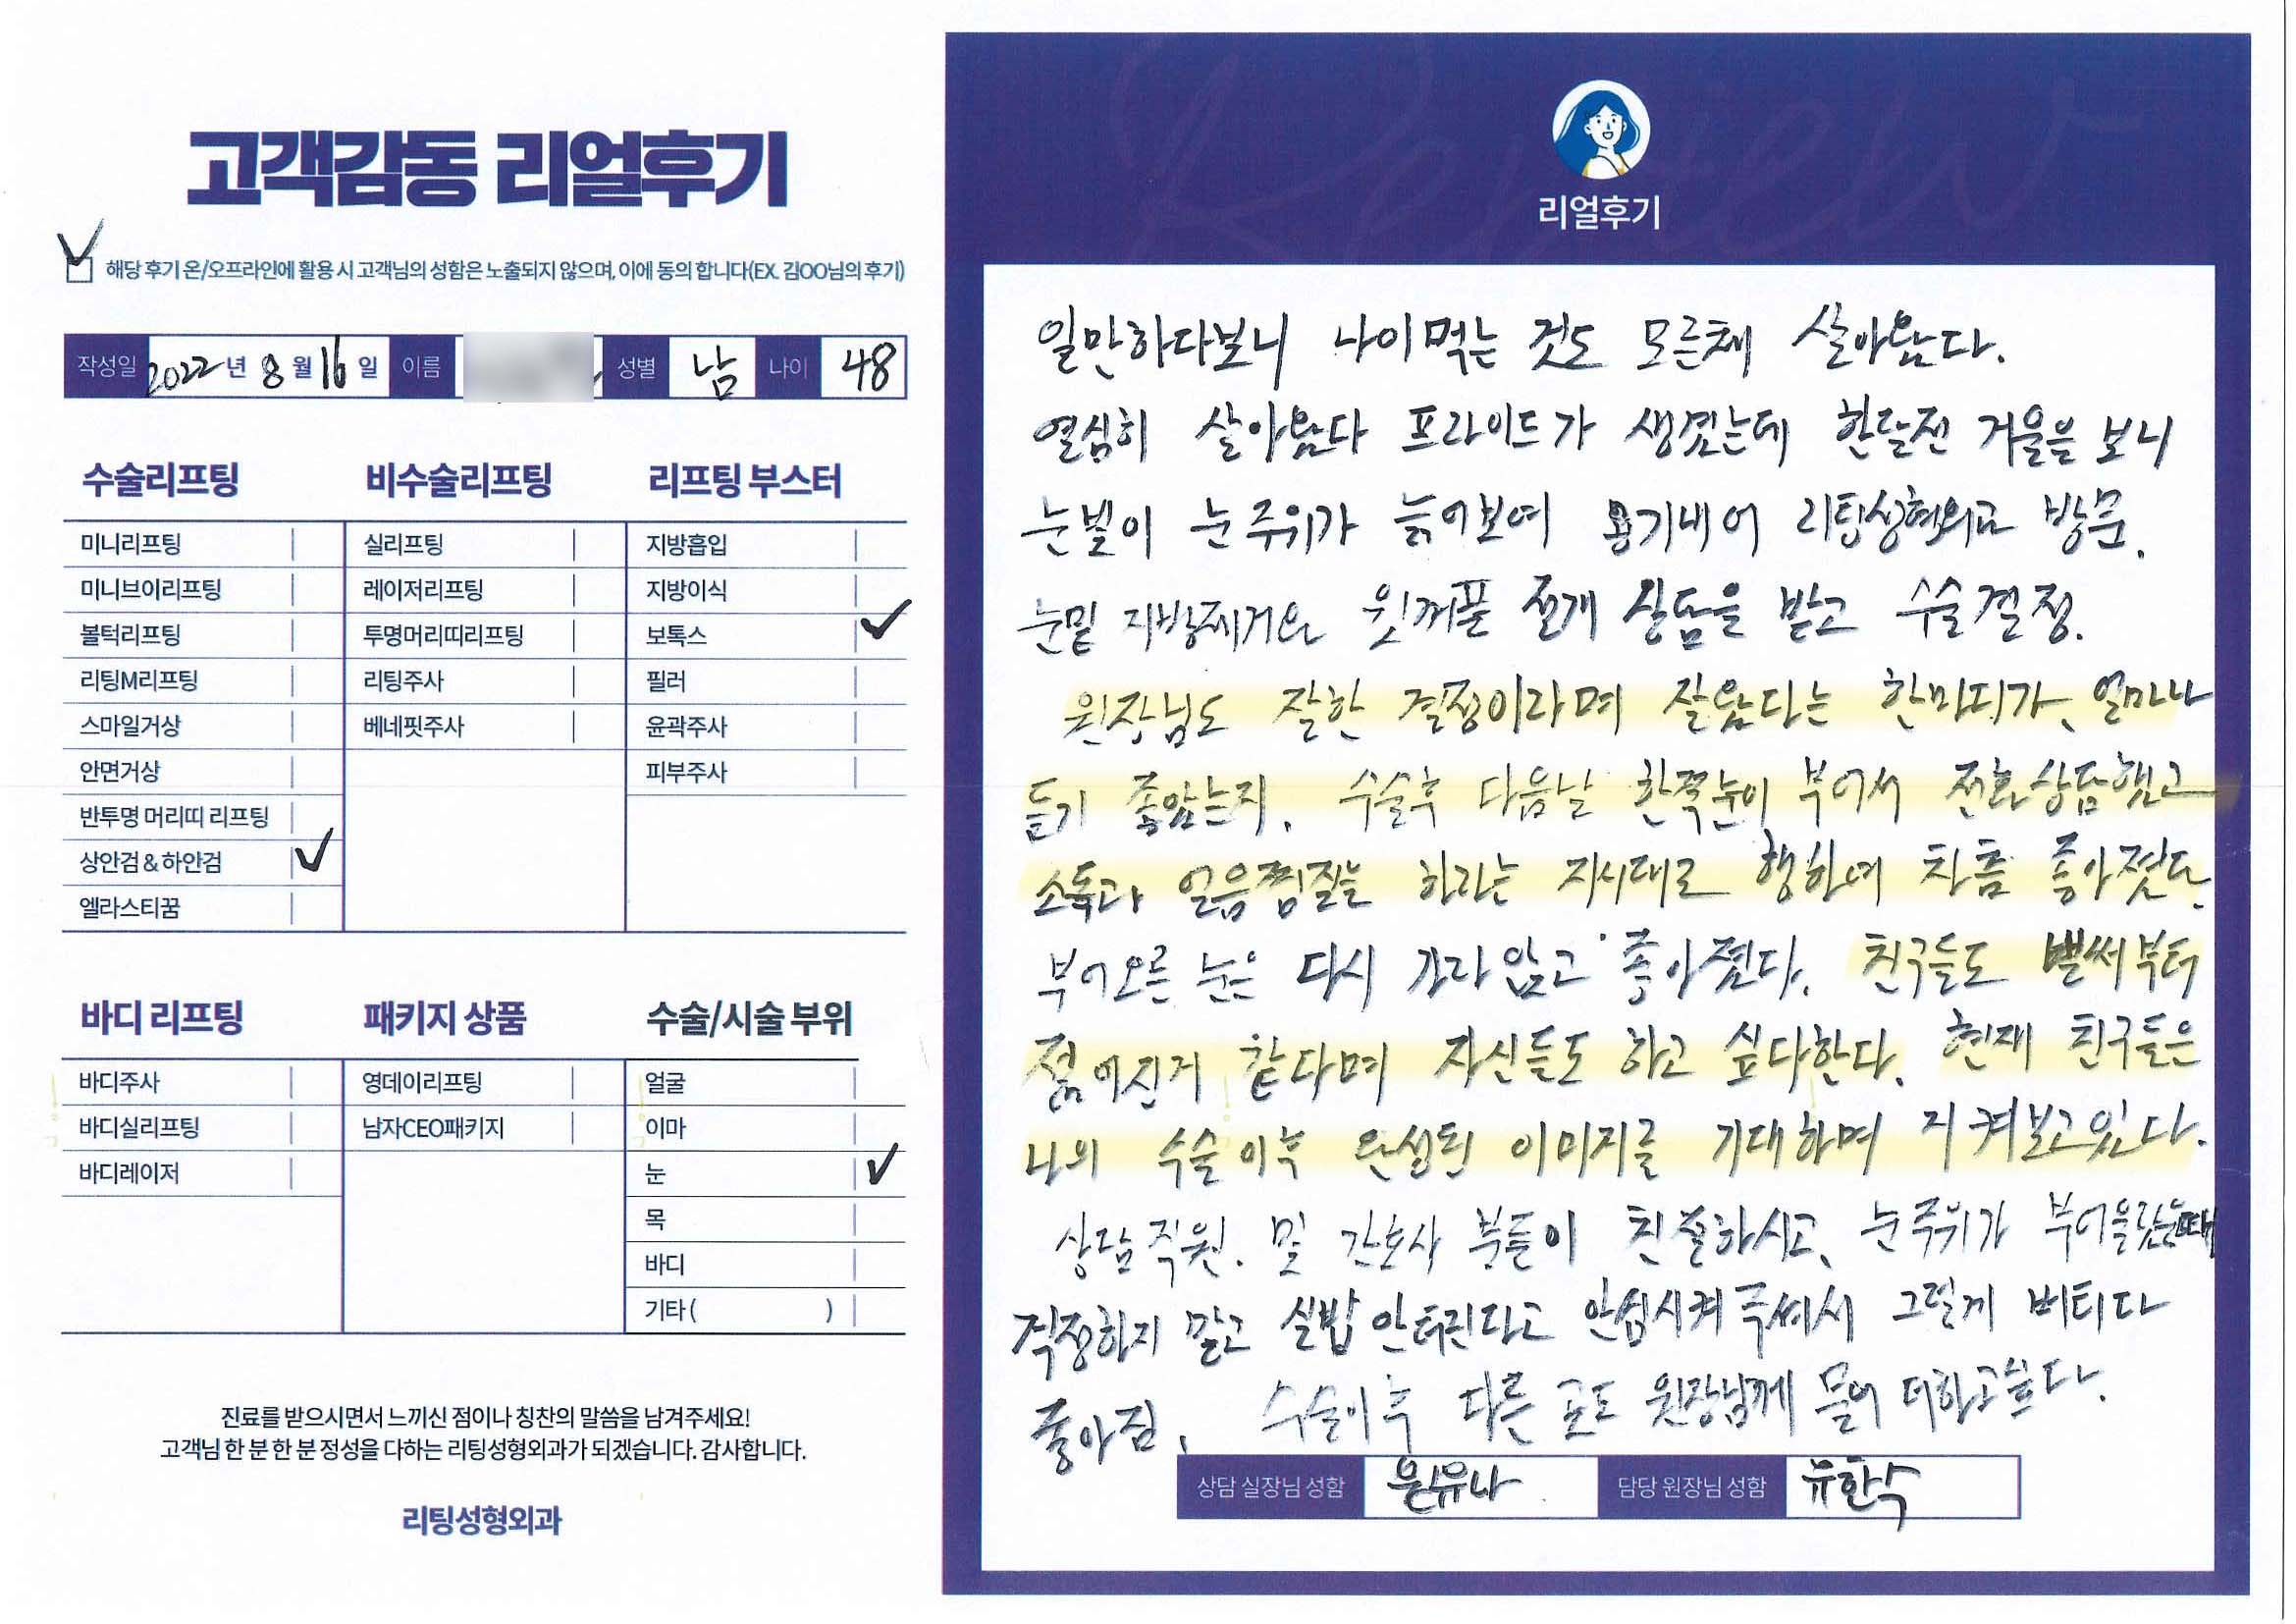 고객감동 리얼후기
해당 후기 온/오프라인에 활용 시 고객님의 성함은 노출되지 않으며, 이에 동의 합니다(EX. 김OO님의 후기)
작성일 2022년 8월 16일 이름 성별 남 나이 48
수술리프팅
미니리프팅
미니브이리프팅
볼턱리프팅
리팅M리프팅
스마일거상
안면거상
반투명 머리띠 리프팅
상안검 & 하안검
엘라스티꿈
비수술리프팅
실리프팅
레이저리프팅
투명머리띠리프팅
리팅주사
베네핏주사
리프팅 부스터
지방흡입
지방이식
보톡스
필러
윤곽주사
피부주사
바디 리프팅
바디주사
바디실리프팅
바디레이저
패키지 상품
영데이리프팅
남자CEO패키지
수술/시술 부위
얼굴
이마
눈
목
바디
기타 ( )
진료를 받으시면서 느끼신 점이나 칭찬의 말씀을 남겨주세요!
고객님 한 분 한 분 정성을 다하는 리팅성형외과가 되겠습니다. 감사합니다.
리팅성형외과
Review
리얼후기
일만하다보니 나이먹는 것도 모른채 살아왔다.
열심히 살아왔다 프라이드가 생겼는데 한달전 거울을 보니
눈빛이 눈 주위가 늙어보여 용기내어 리팅성형외과 방문.
눈밑 지방제거와 윗꺼풀 절개 상담을 받고 수술결정.
원장님도 잘한 결정이라며 잘왔다는 한마디가, 얼마나
듣기 좋았는지. 수술후 다음날 한쪽눈이 부어서 전화상담했고
소독과 얼음찜질을 하라는 지시대로 행하여 차츰 좋아졌다.
부어오른 눈은 다시 가라앉고 좋아졌다. 친구들도 벌써부터
젊어진거 같다며 자신들도 하고 싶다한다. 현재 친구들은
나의 수술이후 완성된 이미지를 기대하며 지켜보고있다.
상담직원. 및 간호사 분들이 친절하시고, 눈주위가 부어올랐을때
걱정하지 말고 실밥 안터진다고 안심시켜 주셔서 그렇게 버티다
좋아짐. 수술이후 다른 곳도 원장님께 물어 더하고싶다.
상담 실장님 성함 윤유나 담당 원장님 성함 유한수